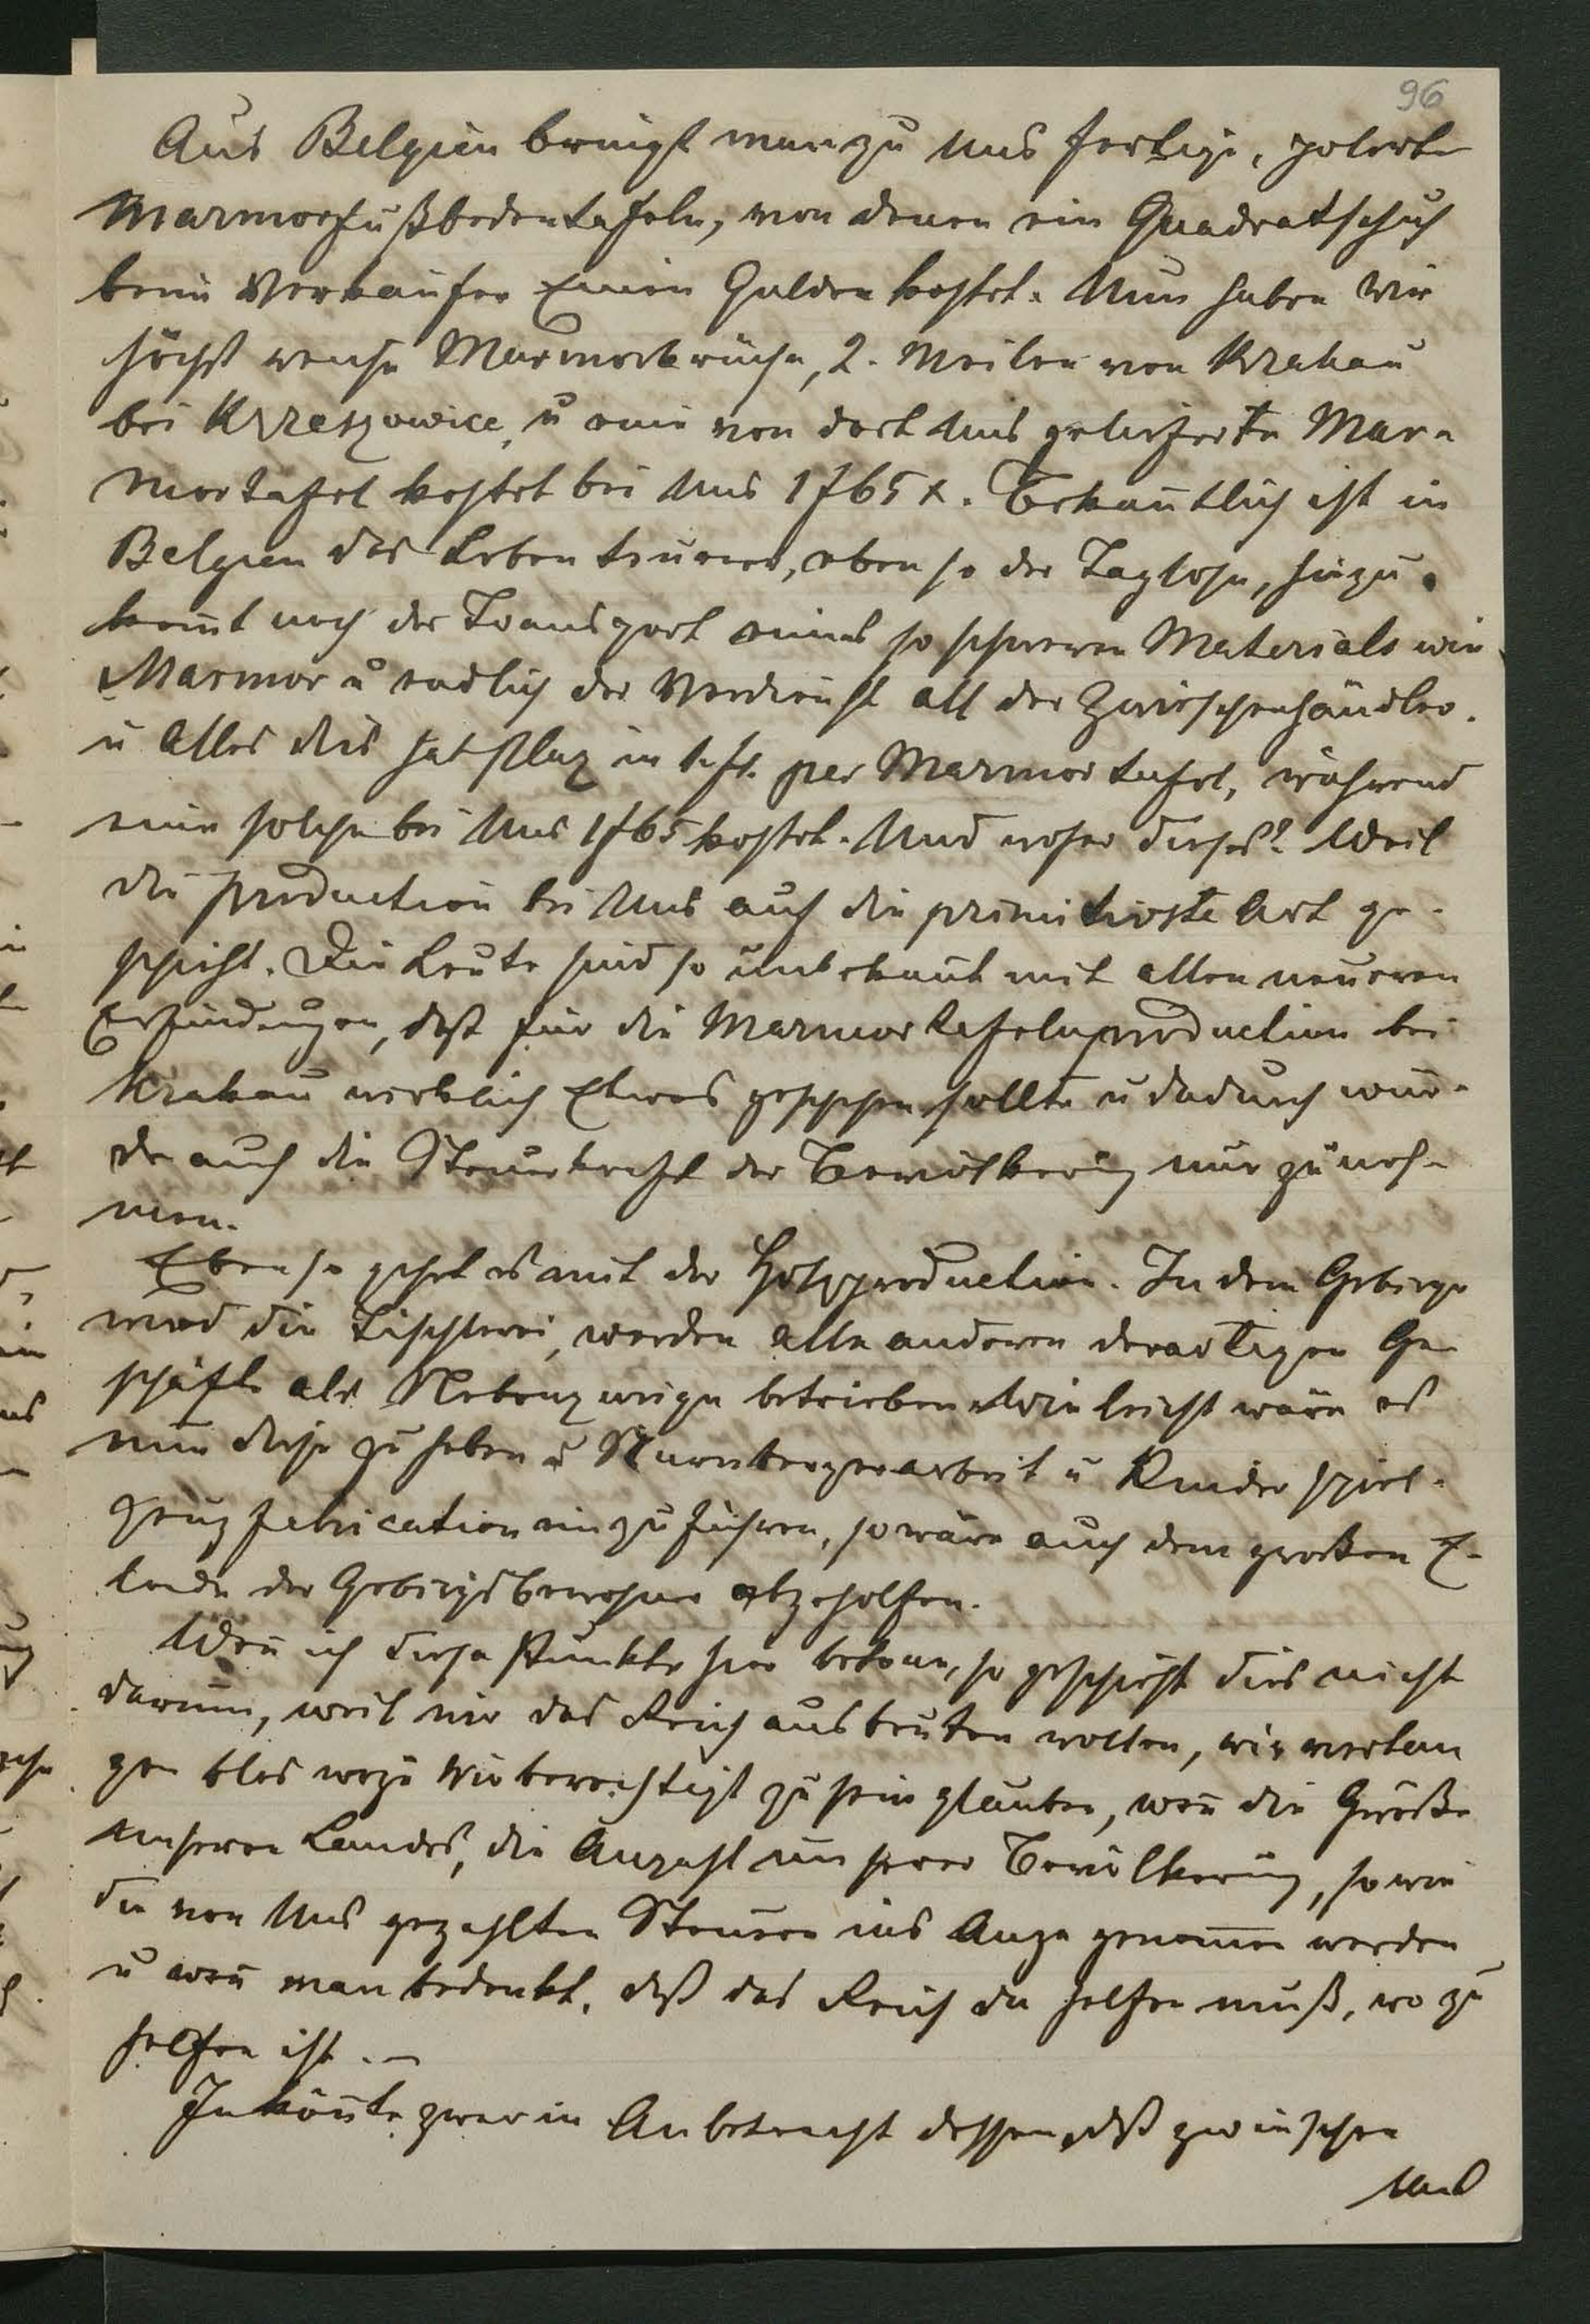 96
Aus Belgien bringt man zu Uns fertige, polirte
Marmorfußbodentafeln, von denen ein Quadratschuh
beim Verkäufer Einen Gulden kostet. Nun haben Wir
höchst reiche Marmorbrüche, 2. Meilen von Krakau
bei Krzeszowice, u eine von dort Uns gelieferte Mar-
mortafel kostet bei Uns 1f65x. Bekanntlich ist in
Belgien das Leben teurer, eben so der Taglohn, hinzu-
kom̄t noch der Transport eines so schweren Materials wie
Marmor u endlich der Verdienst all der Zwischenhändler.
u Alles dies hat Platz in 1. fl. per Marmortafel, während
eine solche bei Uns 1f65 kostet. Und woher dieses? Weil
die Production bei Uns auf die primitivste Art ge-
schieht. Die Leute sind so unbekan̄t mit allen neueren
Erfindungen, daß für die Marmortafelnproduction bei
Krakau wirklich Etwas geschehen sollte u dadurch wür-
de auch die Steuerkraft der Bevölkerung nur zuneh-
men.
Eben so gehet es mit der Holzproduction. In dem Gebirge
wird die Tischlerei, werden alle anderen derartigen Ge-
schäfte als Nebenzweige betrieben. Wie leicht wäre es
nun diese zu heben u Nürnbergerarbeit u Kinderspiel-
zeugfabrication einzuführen, so wäre auch dem großen E-
lende der Gebirgsbewohner abgeholfen.
Wen̄ ich diese Punkte hier betone, so geschieht dies nicht
darum, weil wir das Reich ausbeuten wollten, wir verlan
gen blos wozu Wir berechtigt zu sein glauben, wen̄ die Größe
unseres Landes, die Anzahl unserer Bevölkerung, sowie
die von Uns gezahlten Steuern ins Auge genom̄en werden
u wen̄ man bedenkt, daß das Reich da helfen muß, wo zu
helfen ist. –
Ich kön̄te zwar in Anbetracht dessen, daß zwischen
Uns